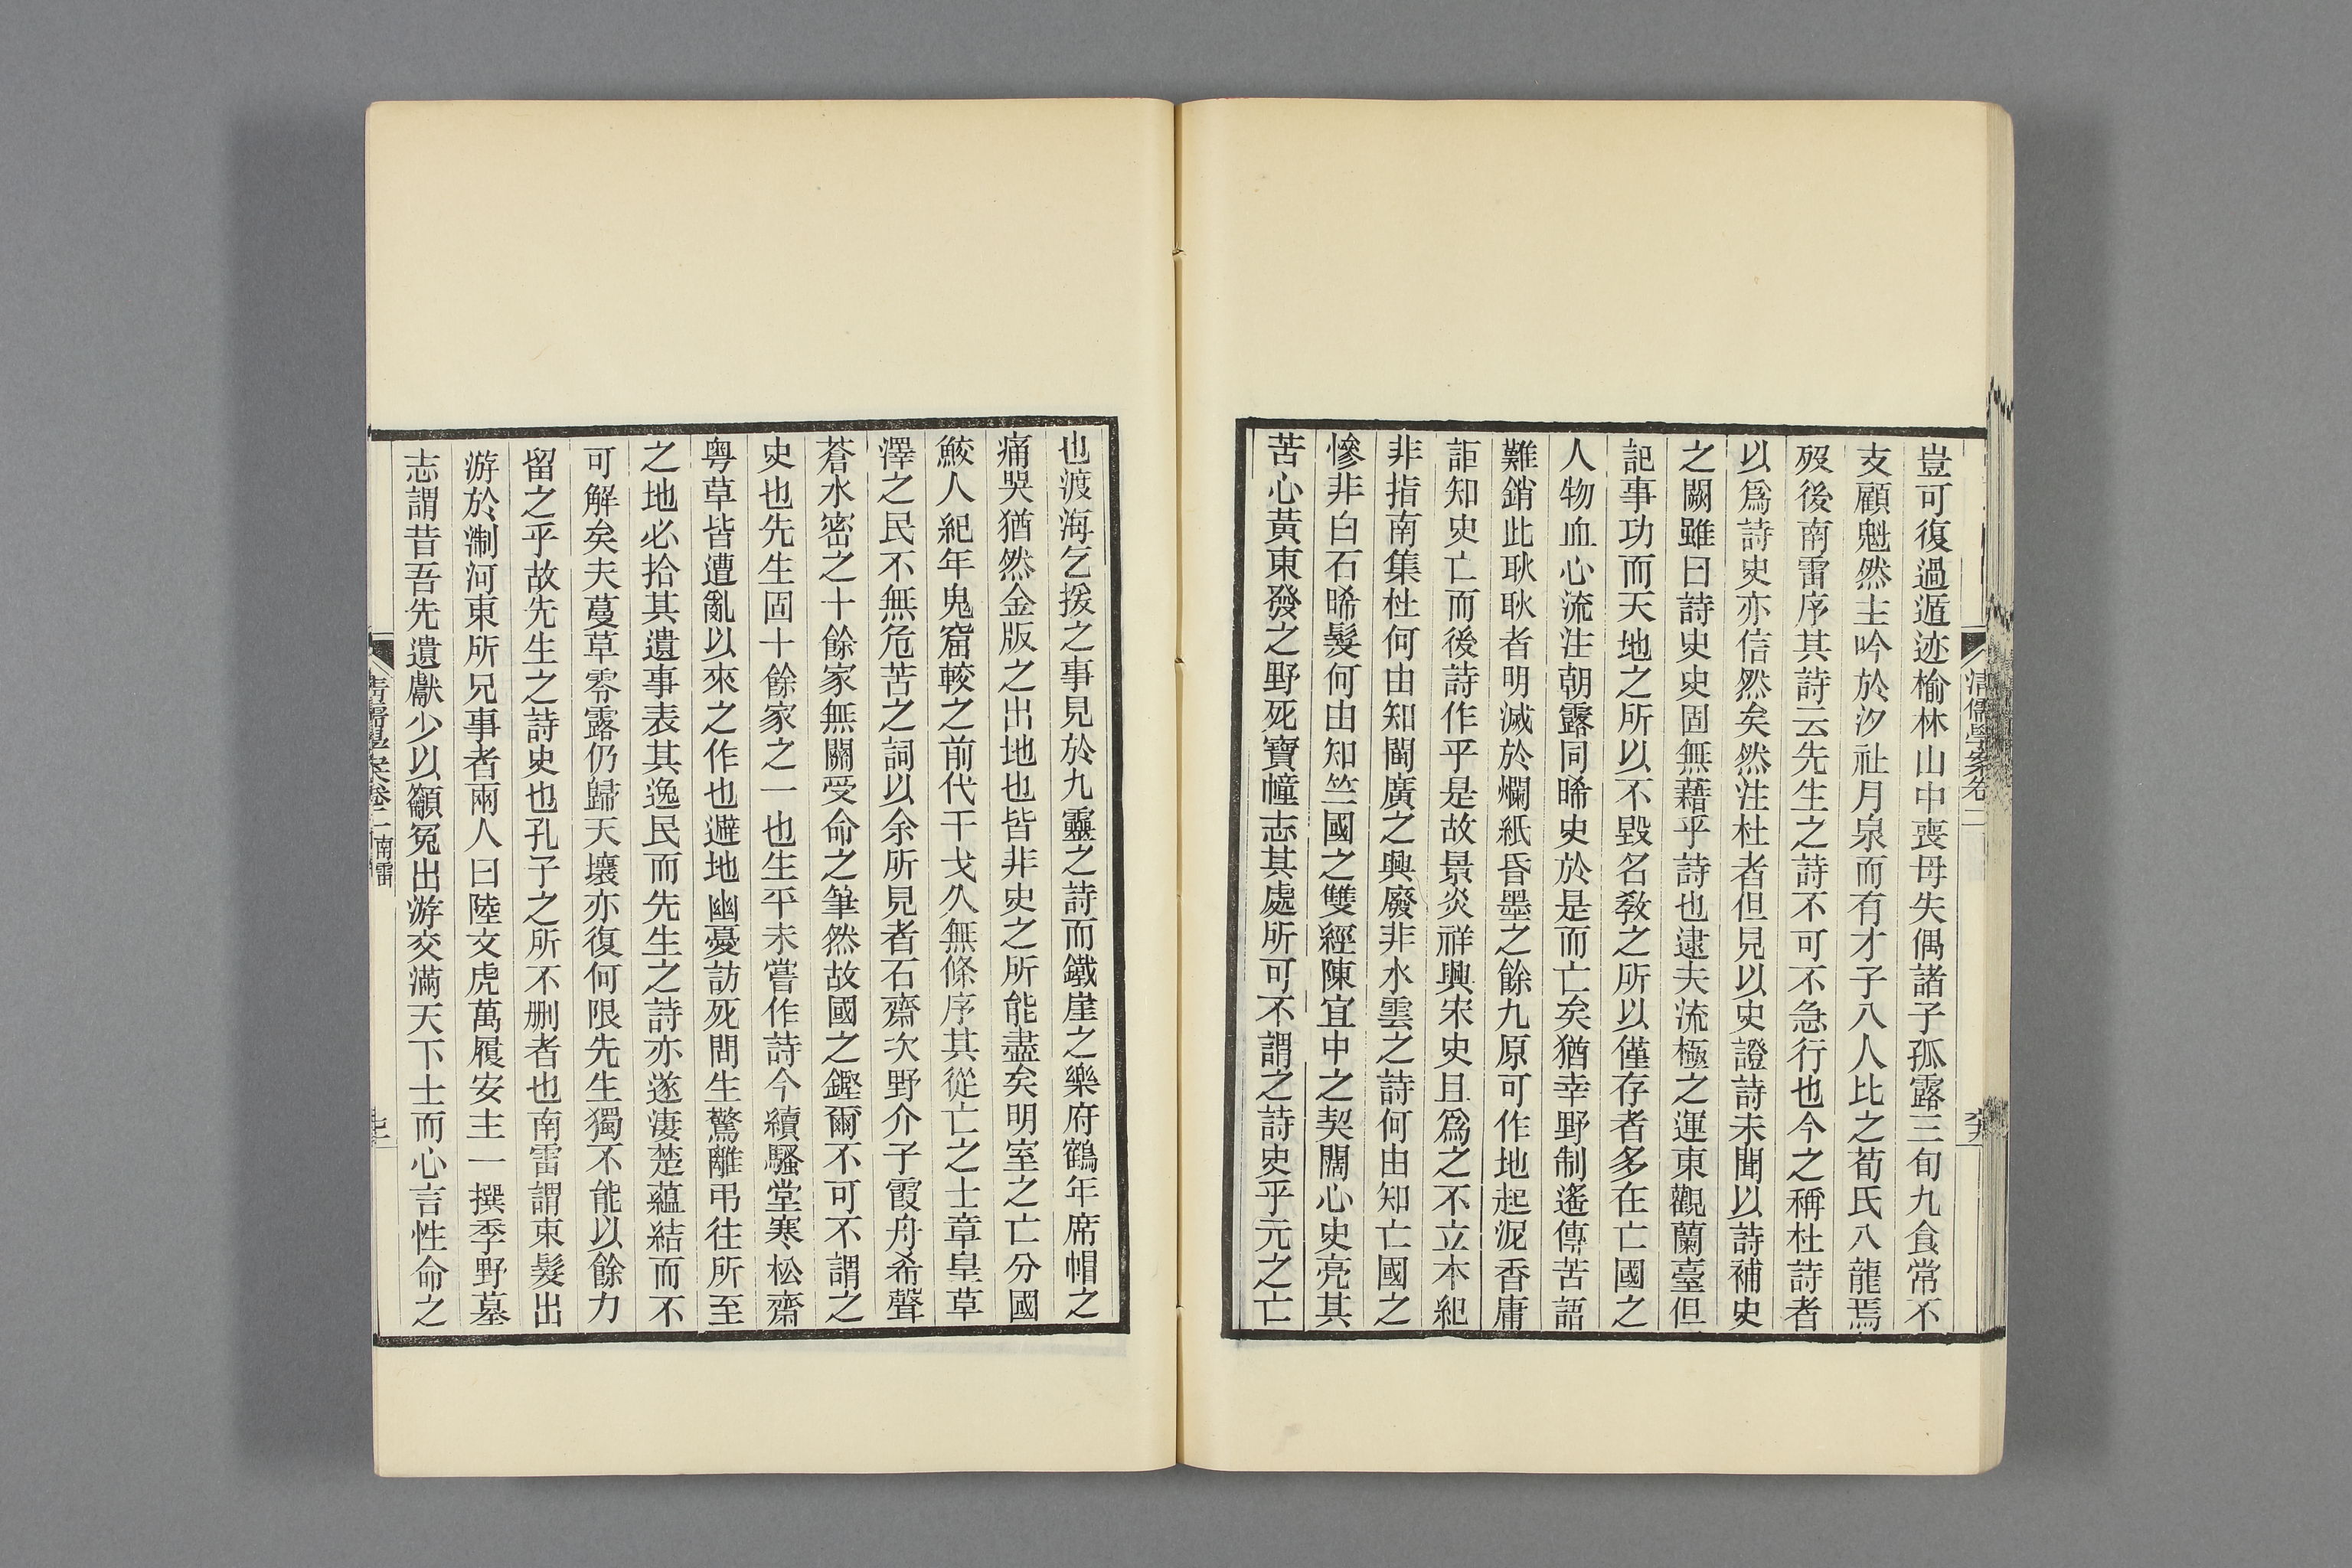 豈可復過遁迹榆林山中喪母失偶諸子孤露三旬九食常不
支顧魁然主吟於汐社月泉而有才子八人比之荀氏八龍焉
歿後南雷序其詩云先生之詩不可不急行也今之稱杜詩者
以爲詩史亦信然矣然注杜者但見以史證詩未聞以詩補史
之闕雖曰詩史史固無藉乎詩也逮夫流極之運東觀蘭臺但
記事功而天地之所以不毀名敎之所以僅存者多在亡國之
人物血心流注朝露同晞史於是而亡矣猶幸野制遙傳苦語
難銷此耿耿者明滅於爛紙昏墨之餘九原可作地起泥香庸
詎知史亡而後詩作乎是故景炎祥興宋史且爲之不立本紀
非指南集杜何由知閩廣之興廢非水雲之詩何由知亡國之
慘非白石晞髮何由知竺國之雙經陳宜中之契闊心史亮其
苦心黃東發之野死寶幢志其處所可不謂之詩史乎元之亡
清儒學案卷二
也渡海乞援之事見於九靈之詩而鐵崖之樂府鶴年席帽之
痛哭猶然金版之出地也皆非史之所能盡矣明室之亡分國
鮫人紀年鬼窟較之前代干戈久無條序其從亡之士章皇草
澤之民不無危苦之詞以余所見者石齋次野介子霞舟希聲
蒼水密之十餘家無關受命之筆然故國之鏗爾不可不謂之
史也先生固十餘家之一也生平未嘗作詩今續騷堂寒松齋
粤草皆遭亂以來之作也避地幽憂訪死問生驚離弔往所至
之地必拾其遺事表其逸民而先生之詩亦遂淒楚蘊結而不
可解矣夫蔓草零露仍歸天壤亦復何限先生獨不能以餘力
留之乎故先生之詩史也孔子之所不刪者也南雷謂束髮出
游於淛河東所兄事者兩人曰陸文虎萬履安主一撰季野墓
志謂昔吾先遺獻少以籲冤出游交滿天下士而心言性命之
清儒學案卷二 南雷